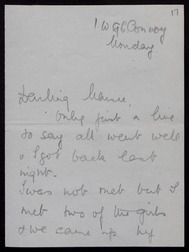 17
Convoy
Monday
Darling
Only just a line
to say all went well
& I got back last
night.
I was not met but I
met two of the girls
& we came up by